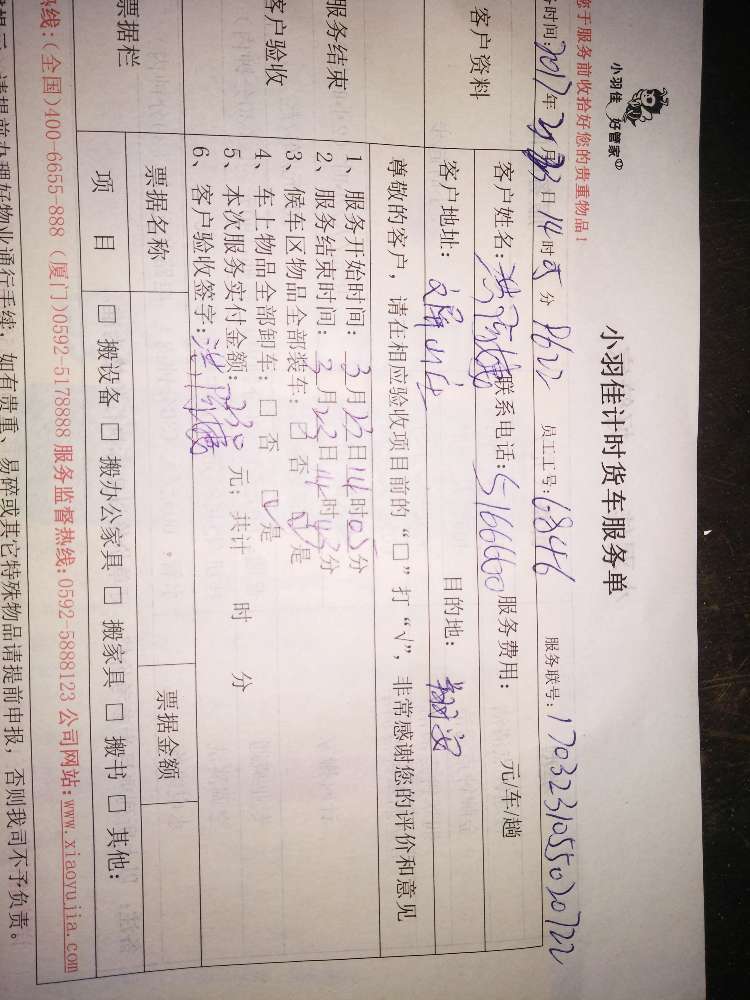 小羽佳 好管家
小羽佳计时货车服务单
您于服务前收拾好您的贵重物品！
时间: 2017年 月23日14时05分 员工工号: 6846 服务联号: 1703231055020722
客户资料
客户姓名: 联系电话: 5166660 服务费用: 元/车/趟
客户地址: 目的地: 翔安
服务结束
客户验收
尊敬的客户，请在相应验收项目前的“□”打“√”，非常感谢您的评价和意见
1、服务开始时间: 3月23日14时05分
2、服务结束时间: 3月23日14时43分
3、候车区物品全部装车: □ 否 ☑ 是
4、车上物品全部卸车: □ 否 ☑ 是
5、本次服务实付金额: 230元; 共计 时 分
6、客户验收签字:
票据栏
票据名称 票据金额
项 目 □ 搬设备 □ 搬办公家具 □ 搬家具 □ 搬书 □ 其他:
热线:(全国)400-6655-888 (厦门)0592-5178888 服务监督热线:0592-5888123 公司网站:www.xiaoyujia.com
请提前办理好物业通行手续，如有贵重、易碎或其它特殊物品请提前申报，否则我司不予负责。